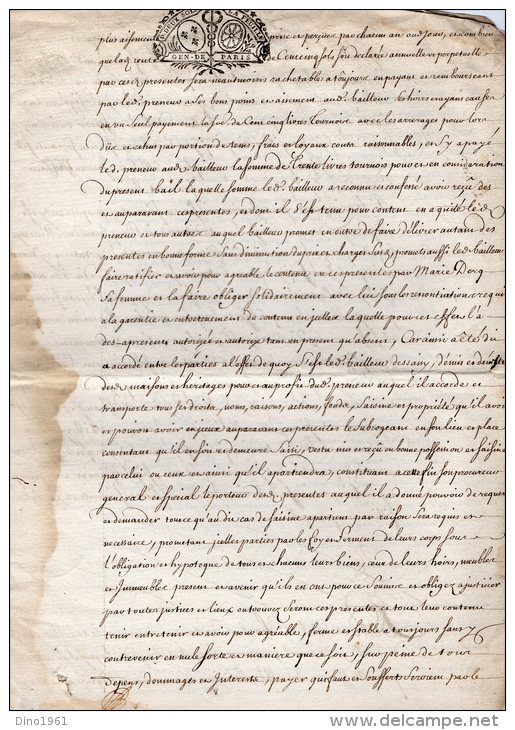 plus aisement prise et perçüe par chacun an aud. jour, et combien
que lad. rente de Cent cinq sols soit declarée annuelle et perpetuelle
DEUX SOLS LA FEUILLE
GEN. DE PARIS
par ces presentes sera neantmoins rachetable a toujours en payant et remboursant
par led. preneur a ses bons points et aisement aud. bailleur ses hoirs et ayans cause
en un seul payement la so.e de Cent cinq livres tournois avec les arerages pour lors
dûs et echus par portion de tems, frais et loyaux couts raisonnables, en ce y a payé
led. preneur aud. bailleur la somme de trente livres tournois pour et en consideration
du present bail laquelle somme led. bailleur a reconnu et confessé avoir reçu des
et auparavant ces presentes, et dont il s'est tenu pour content en a quitté led.
preneur et tous autres auquel bailleur promet en outre de faire délivrer autant des
presentes en bonne forme sans diminution du prix et charges susd. promet aussi led. bailleur
faire ratifier et avoir pour agreable le contenu en ces presentes par Marie Docq
sa femme et la faire obliger solidairement avec lui sous les renontiations requises
a la garentie et entretenement du contenu en icelles laquelle pour cet effet il a
des-apresent autorizée et autorize tant en presence qu'absent, Car ainsi a été dit
et acordé entre les parties al'effet de quoy s'est led. bailleur dessaisy, démis et devetu
desd. maisons et heritages pour et au profit dud. preneur auquel il accorde et
transporte tous ses droits, noms, raisons, actions, fonds, saisine et propriété qu'il avoit
et pouvoit avoir en iceux auparavant ces presentes le subrogeant en son lieu et place
consentant qu'il en soit et demeure saisi, vestu mis et reçu en bonne possession et saisine
par celui ou ceux et ainsi qu'il apartiendra, constituant a cette fin son procureur
general et special le porteur desd. presentes auquel il a donné pouvoir de requerir
et demander tout ce qu'au dit cas de saisine apartient par raison sera requis et
necessaire, promettant icelles parties par les foy et serment de leurs corps sous
l'obligation et hypoteque de tous et chacuns leurs biens, ceux de leurs hoirs, meubles
et Immeubles present et avenir qu'ils en ont pour ce soumis et obligez a justicier
par toutes justices et lieux ou trouvez seront ces presentes et tout leur contenu
tenir entretenir et avoir pour agréable, ferme et stable a toujours sans y
contrevenir en nulle sorte et maniere que ce soit, sur peine de tous
depens, dommages et Interests, payer qui faits et soufferts seroient par le
Dino1961